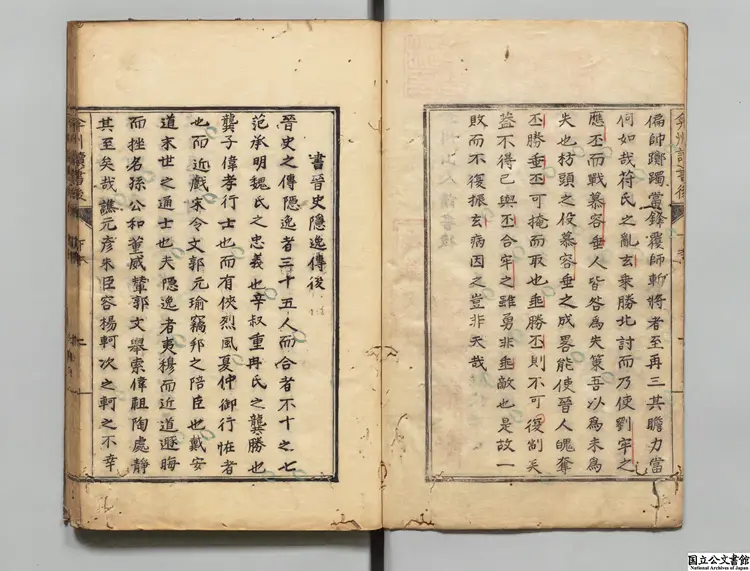 偏帥躑躅當鋒覆師斬將者至再三其瞻力當
何如哉苻氏之亂玄乗勝北討而乃使劉牢之
應丕而戰慕容垂人皆咎為失策吾以為未為
失也枋頭之役慕容垂之成畧能使晉人魄奪
丕勝垂丕可掩而取也垂勝丕則不可復制矣
葢不得已與丕合牢之雖勇非垂敵也是故一
敗而不復振玄病因之豈非天哉
書晉史隱逸傳後
晉史之傳隱逸者三十五人而合者不十之七
范承明魏氏之忠義也辛叔重冉氏之龔勝也
龔子偉孝行士也而有俠烈風夏仲御行恠者
也而近戲宋令文郭元瑜竊邦之陪臣也戴安
道末世之通士也夫隱逸者夷穆而近道遯晦
而挫名孫公和董威輦郭文舉索偉祖陶處靜
其至矣哉譙元彦朱臣容楊軻次之軻之不幸
弇州讀書後
二
国立公文書館
National Archives of Japan